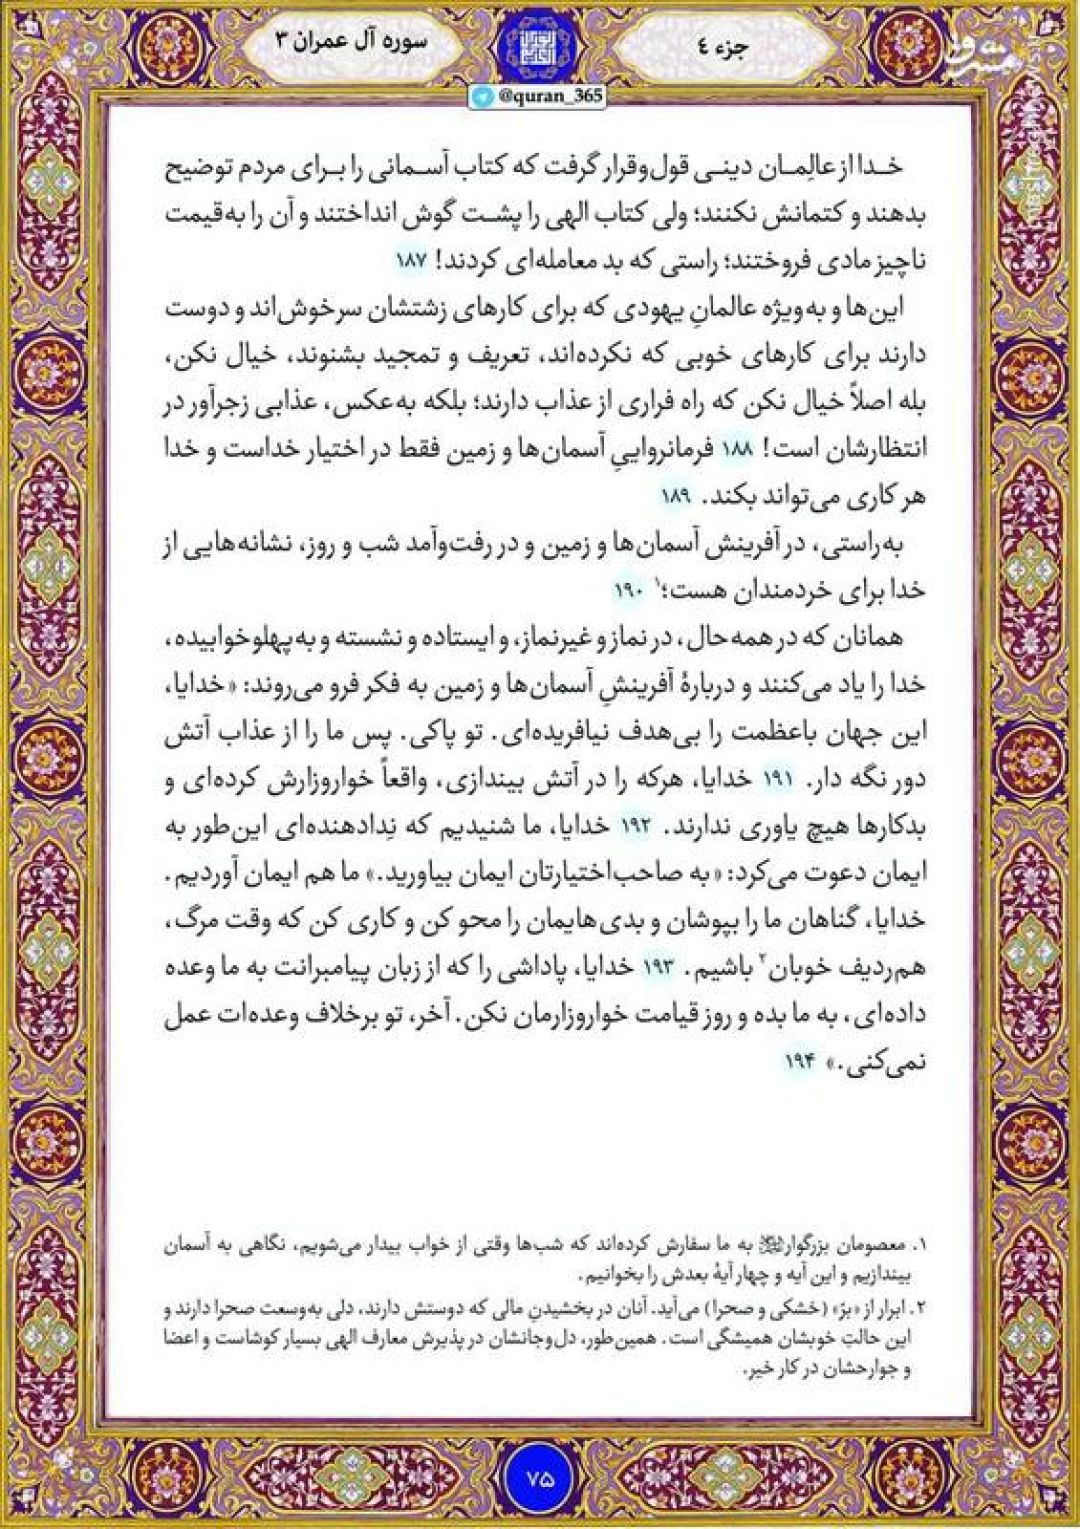 جزء ٤
سوره آل عمران ٣
@quran_365
مشرق
خدا از عالِمان دینی قول‌وقرار گرفت که کتاب آسمانی را برای مردم توضیح
بدهند و کتمانش نکنند؛ ولی کتاب الهی را پشت گوش انداختند و آن را به‌قیمت
ناچیز مادی فروختند؛ راستی که بد معامله‌ای کردند! ۱۸۷
این‌ها و به‌ویژه عالمانِ یهودی که برای کارهای زشتشان سرخوش‌اند و دوست
دارند برای کارهای خوبی که نکرده‌اند، تعریف و تمجید بشنوند، خیال نکن،
بله اصلاً خیال نکن که راه فراری از عذاب دارند؛ بلکه به‌عکس، عذابی زجرآور در
انتظارشان است! ۱۸۸ فرمانرواییِ آسمان‌ها و زمین فقط در اختیار خداست و خدا
هر کاری می‌تواند بکند. ۱۸۹
به‌راستی، در آفرینش آسمان‌ها و زمین و در رفت‌وآمد شب و روز، نشانه‌هایی از
خدا برای خردمندان هست؛۱ ۱۹۰
همانان که در همه حال، در نماز و غیرنماز، و ایستاده و نشسته و به‌پهلو خوابیده،
خدا را یاد می‌کنند و دربارهٔ آفرینشِ آسمان‌ها و زمین به فکر فرو می‌روند: «خدایا،
این جهان باعظمت را بی‌هدف نیافریده‌ای. تو پاکی. پس ما را از عذاب آتش
دور نگه دار. ۱۹۱ خدایا، هرکه را در آتش بیندازی، واقعاً خواروزارش کرده‌ای و
بدکارها هیچ یاوری ندارند. ۱۹۲ خدایا، ما شنیدیم که نِدادهنده‌ای این‌طور به
ایمان دعوت می‌کرد: «به صاحب‌اختیارتان ایمان بیاورید.» ما هم ایمان آوردیم.
خدایا، گناهان ما را بپوشان و بدی‌هایمان را محو کن و کاری کن که وقت مرگ،
هم‌ردیف خوبان۲ باشیم. ۱۹۳ خدایا، پاداشی را که از زبان پیامبرانت به ما وعده
داده‌ای، به ما بده و روز قیامت خواروزارمان نکن. آخر، تو برخلاف وعده‌ات عمل
نمی‌کنی.» ۱۹۴
۱. معصومان بزرگوار به ما سفارش کرده‌اند که شب‌ها وقتی از خواب بیدار می‌شویم، نگاهی به آسمان
بیندازیم و این آیه و چهار آیهٔ بعدش را بخوانیم.
۲. ابرار از «برّ» (خشکی و صحرا) می‌آید. آنان در بخشیدنِ مالی که دوستش دارند، دلی به‌وسعت صحرا دارند و
این حالتِ خوبشان همیشگی است. همین‌طور، دل‌وجانشان در پذیرش معارف الهی بسیار کوشاست و اعضا
و جوارحشان در کار خیر.
۷۵